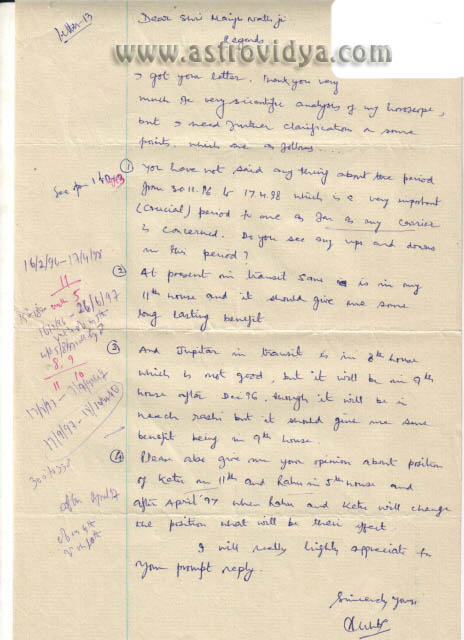 Letter-13
Dear Shri
Regards
www.astrovidya.com
I got your letter. Thank you very
much for very scientific analysis of my horoscope,
but I need further clarification on some
points, which are as follows....
① You have not said any thing about the period
from 30.11.96 to 17.4.98 which is a very important
(crucial) period to me as far as my carrier
is concerned. Do you see any ups and downs
in this period?
② At present in transit is in my
11th house and it should give me some
long lasting benefit.
③ And Jupitar in transit is in 8th house
which is not good, but it will be in 9th
house after Dec 96, though it will be in
neech rashi but it should give me some
benefit being in 9th house.
④ Please also give me your opinion about position
of Ketu in 11th and Rahu in 5th house and
after April '97 when Rahu and Ketu will change
the position what will be their effect.
I will really highly appreciate for
your prompt reply.
Sincerely Yours
11
5
8, 9
11 10
after April 97